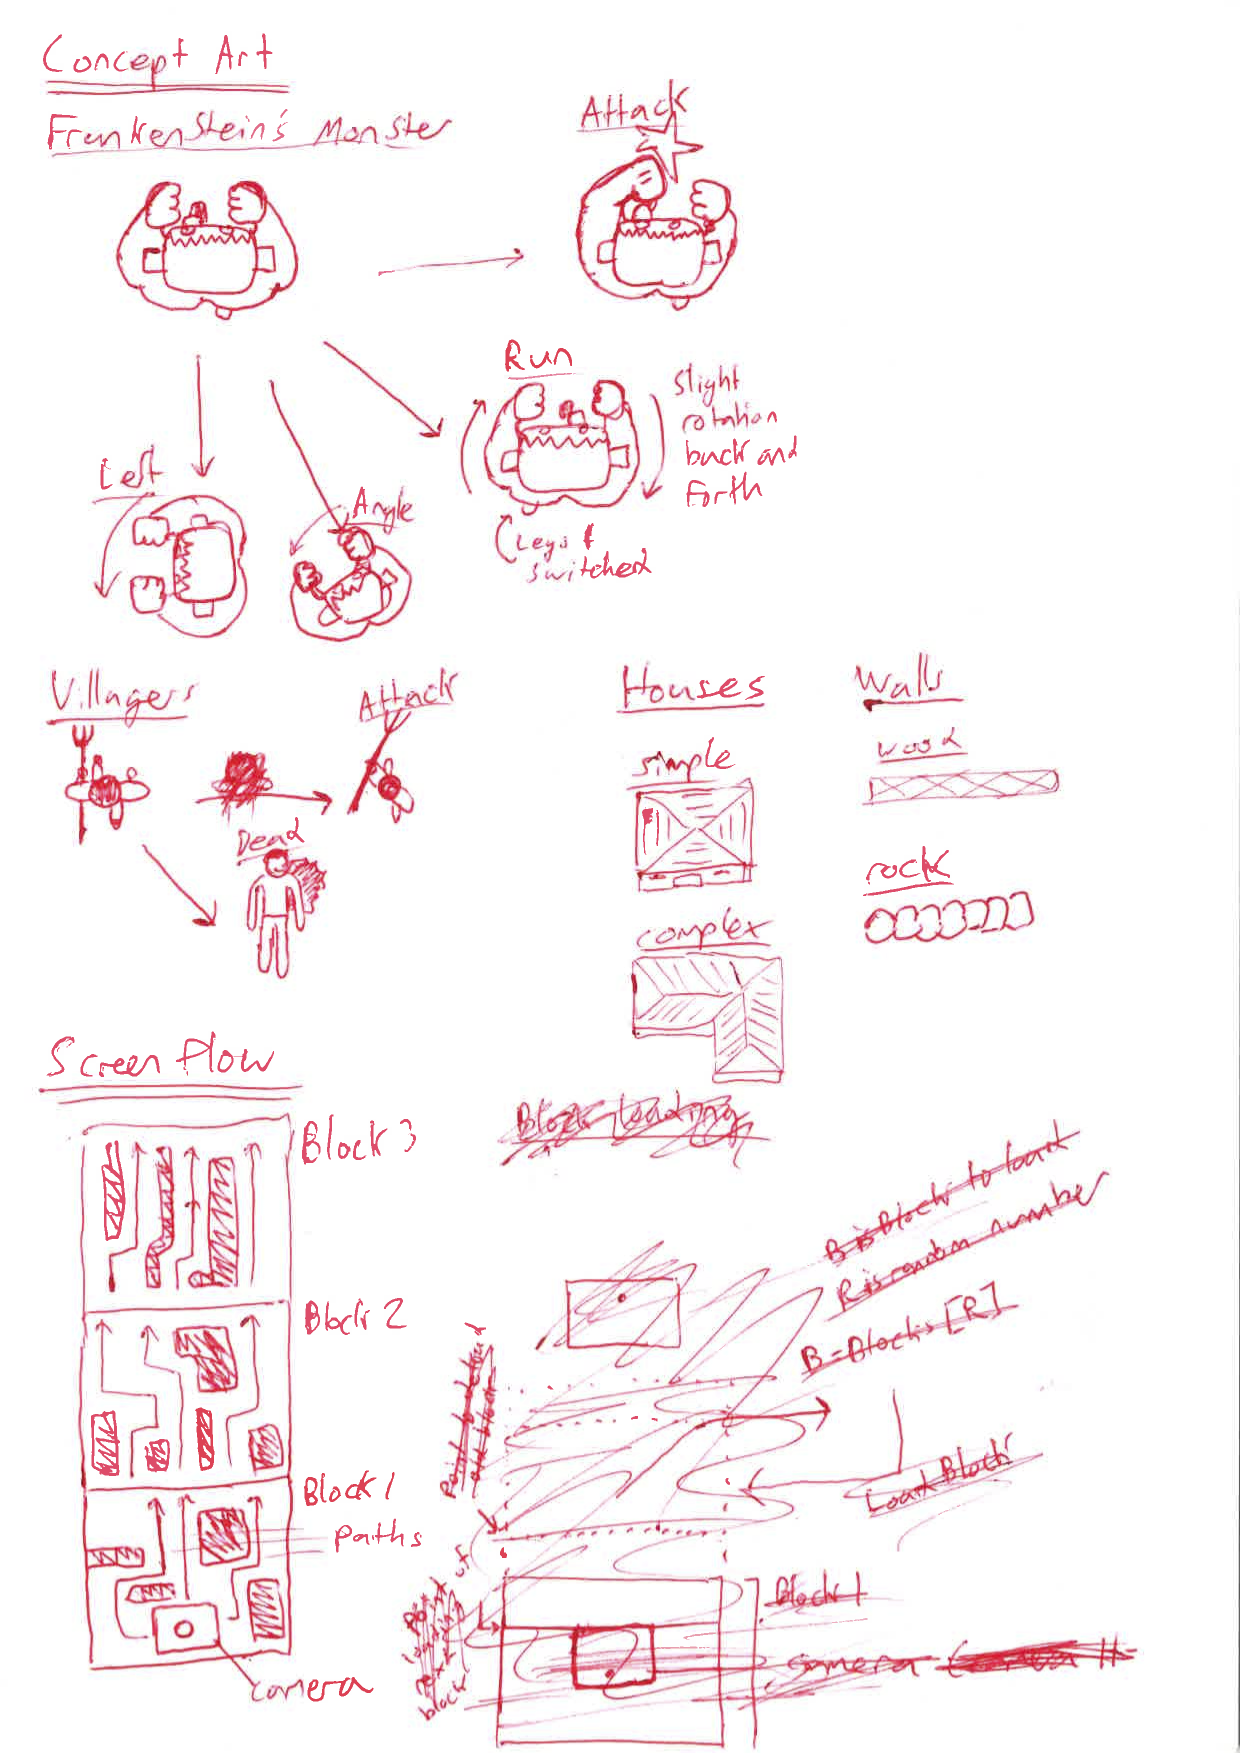 Concept Art
Frankenstein's Monster
Attack
Run
Slight
rotation
back and
Forth
Left
Angle
Legs
switched
Villagers
Attack
Dead
Houses
simple
complex
Walls
wood
rock
Screen Flow
Block 3
Block 2
Block 1
Paths
camera
Block Loading
B is Block to load
R is random number
B = Blocks [R]
Load Block
Point of
loading
next
block
Block 1
camera